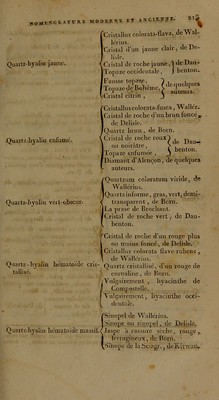 NOMENCLATURE MODERNE ET ANCIENNE.
Cristallus colorata-flava, de Wallérius.
Cristal d'un jaune clair, de Delisle.
Quartz-hyalin jaune.
Cristal de roche jaune, de Dau-
Topaze occidentale, benton.
Fausse topaze,
Topaze de Bohême, de quelques
Cristal citrin, auteurs.
Cristallus colorata-fusca, Wallér.
Cristal de roche d'un brun foncé,
de Delisle.
Quartz brun, de Born.
Quartz-hyalin enfumé.
Cristal de roche roux
ou noirâtre, de Dau-
Topaze enfumée, benton.
Diamant d'Alençon, de quelques
auteurs.
Quartzum coloratum viride, de
Wallérius.
Quartz informe, gras, vert, demi-
Quartz-hyalin vert-obscur.
transparent, de Born.
La prase de Brochant.
Cristal de roche vert, de Dau-
benton.
Cristal de roche d'un rouge plus
ou moins foncé, de Delisle.
Cristallus colorata flave rubens,
de Wallérius.
Quartz-hyalin hématoïde cris-
tallisé.
Quartz cristallisé, d'un rouge de
cornaline, de Born.
Vulgairement, hyacinthe de
Compostelle.
Vulgairement, hyacinthe occi-
dentale.
Sinopel de Wallérius.
Sinope ou sinopel, de Delisle.
Quartz hyalin hématoïde massif.
Jaspe à cassure sèche, rouge,
ferrugineux, de Born.
Sinople de la Scagr., de Kirwan.